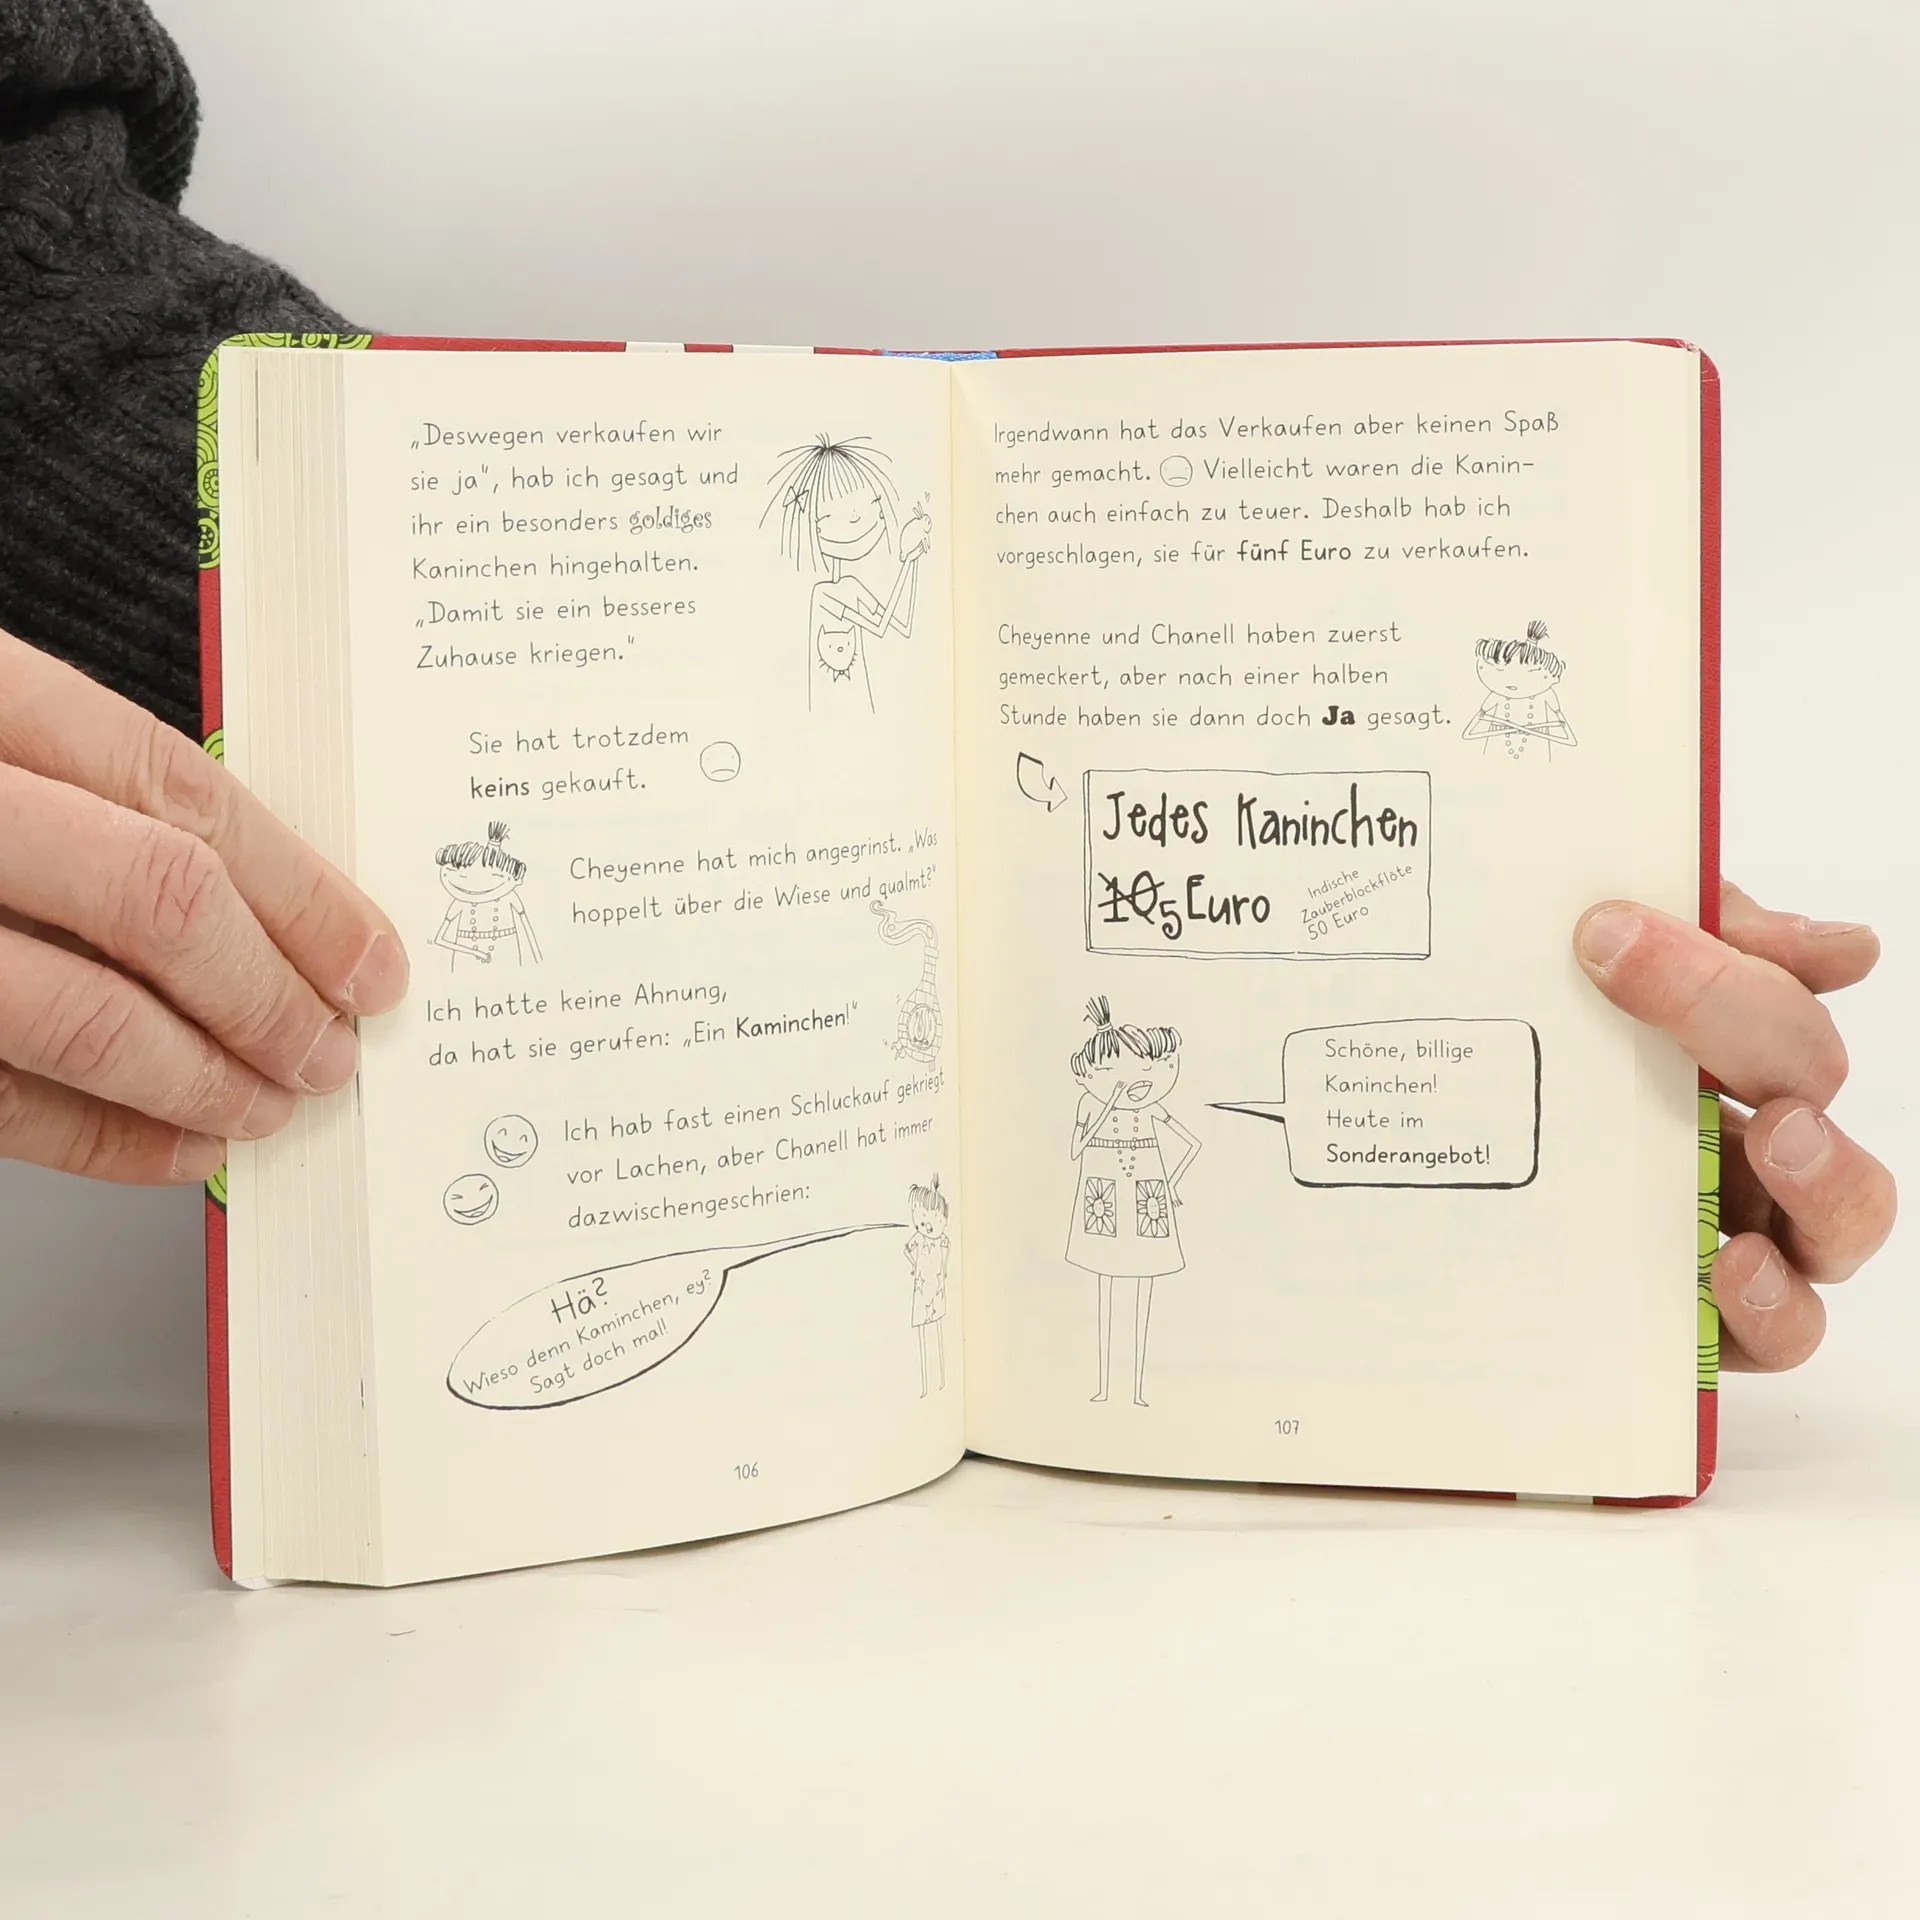 „Deswegen verkaufen wir
sie ja", hab ich gesagt und
ihr ein besonders goldiges
Kaninchen hingehalten.
„Damit sie ein besseres
Zuhause kriegen."
Sie hat trotzdem
keins gekauft.
Cheyenne hat mich angegrinst. „Was
hoppelt über die Wiese und qualmt?"
Ich hatte keine Ahnung,
da hat sie gerufen: „Ein Kaminchen!"
Ich hab fast einen Schluckauf gekriegt
vor Lachen, aber Chanell hat immer
dazwischengeschrien:
Hä?
Wieso denn Kaminchen, ey?
Sagt doch mal!
106
Irgendwann hat das Verkaufen aber keinen Spaß
mehr gemacht. Vielleicht waren die Kanin-
chen auch einfach zu teuer. Deshalb hab ich
vorgeschlagen, sie für fünf Euro zu verkaufen.
Cheyenne und Chanell haben zuerst
gemeckert, aber nach einer halben
Stunde haben sie dann doch Ja gesagt.
Jedes Kaninchen
10 5 Euro
Indische
Zauberblockflöte
50 Euro
Schöne, billige
Kaninchen!
Heute im
Sonderangebot!
107